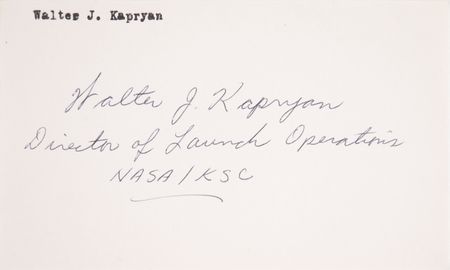 Walter J. Kapryan
Walter J. Kapryan
Director of Launch Operations
NASA/KSC